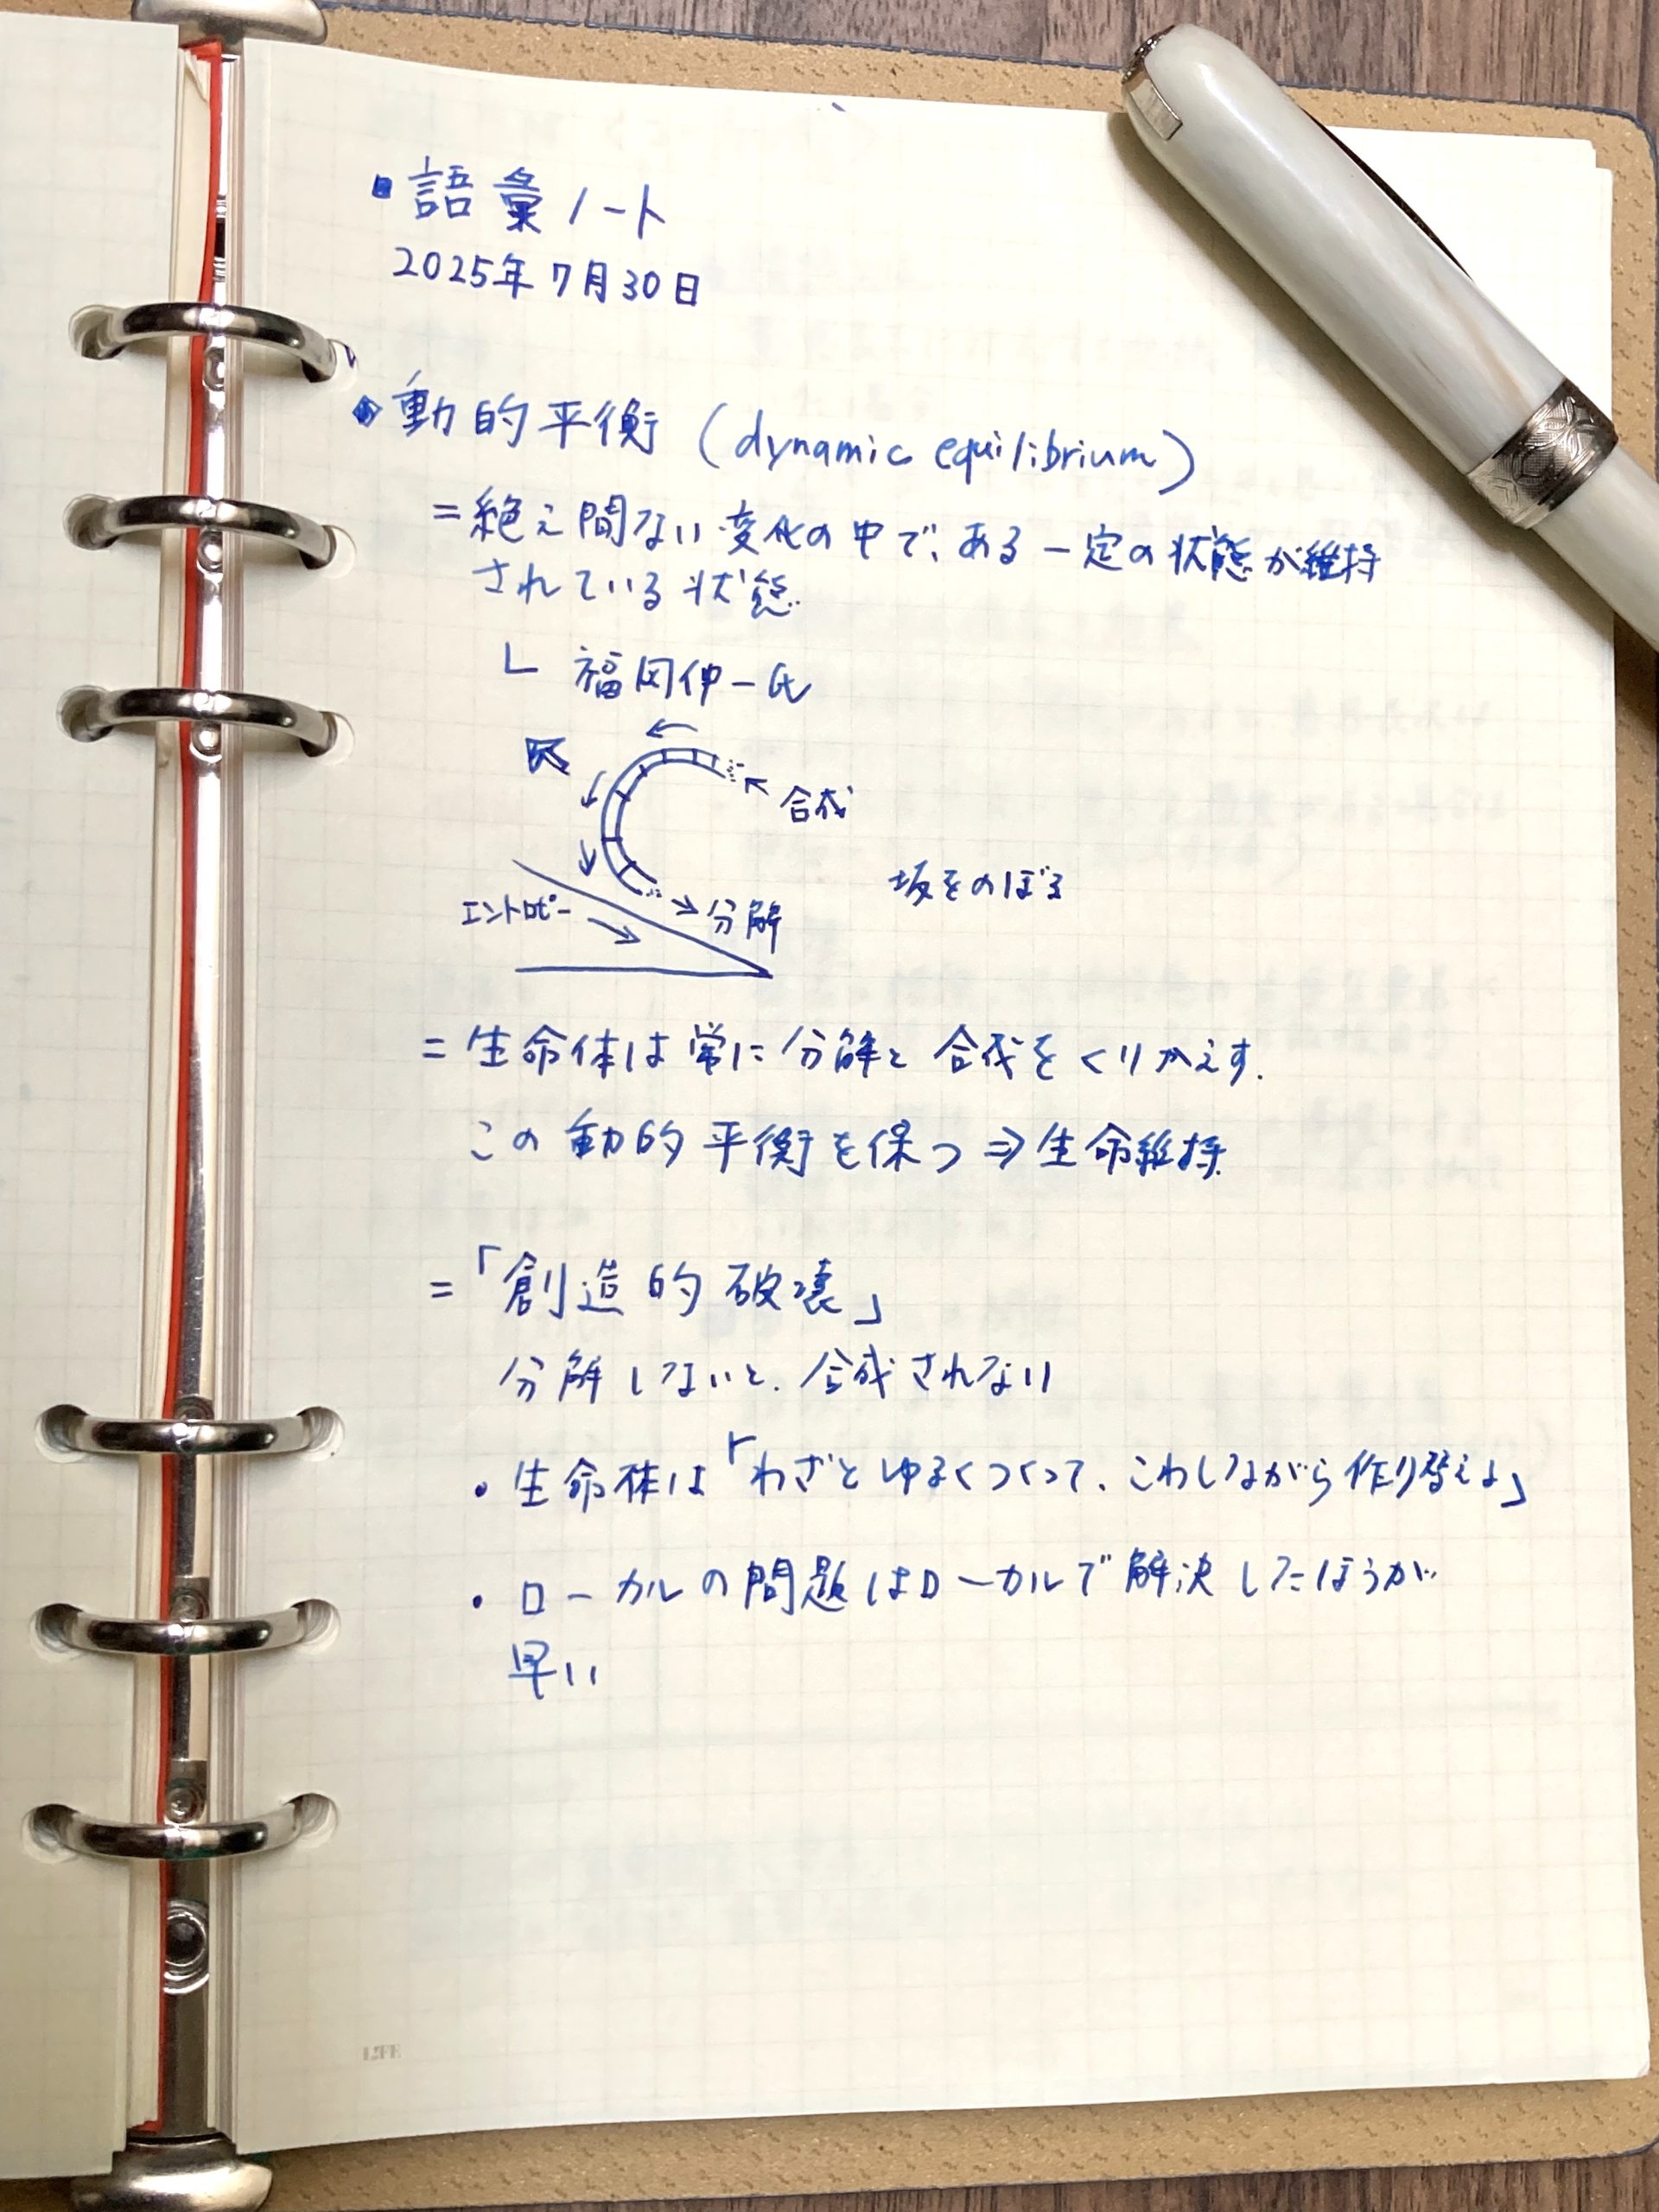 ▪語彙ノート
2025年7月30日
◆動的平衡 (dynamic equilibrium)
=絶え間ない変化の中で、ある一定の状態が維持
されている状態
└ 福岡伸一氏
図
合成
坂をのぼる
エントロピー
→分解
=生命体は常に分解と合成をくりかえす.
この動的平衡を保つ⇒生命維持
=「創造的破壊」
分解しないと、合成されない
・生命体は「わざとゆるくつくって、こわしながら作り替えよ」
・ローカルの問題はローカルで解決したほうが
早い
LIFE